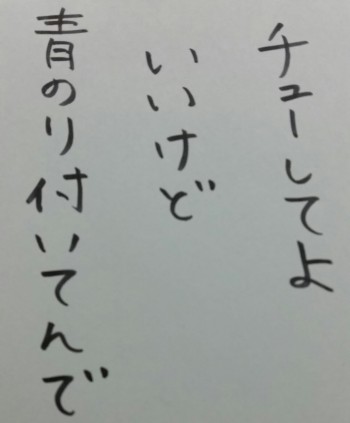 チューしてよ
いいけど
青のり付いてんで